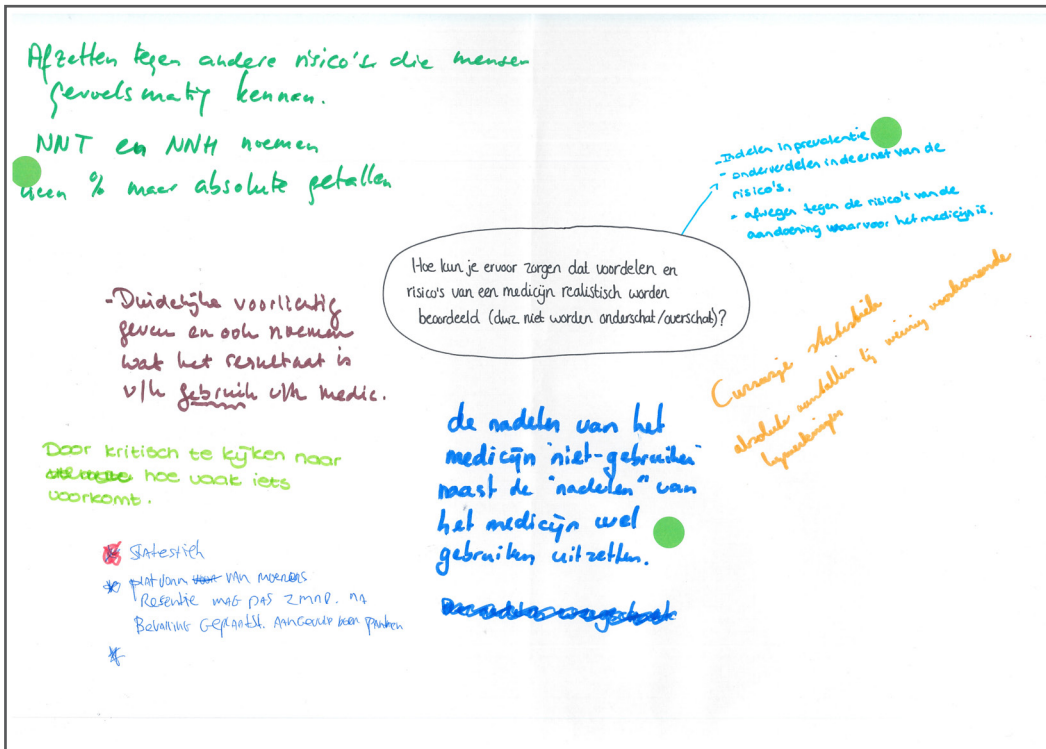 Afzetten tegen andere risico's die mensen
gevoelsmatig kennen.
NNT en NNH noemen
Geen % maar absolute getallen
- Indelen in prevalentie
- onderverdelen in de ernst van de
risico's.
- afwegen tegen de risico's van de
aandoening waarvoor het medicijn is.
Hoe kun je ervoor zorgen dat voordelen en
risico's van een medicijn realistisch worden
beoordeeld (dwz niet worden onderschat/overschat)?
- Duidelijke voorlichtig
geven en ook noemen
wat het resultaat is
v/h gebruik v/h medic.
Cursusje statistiek
absolute aantallen bij weinig voorkomende
bijwerkingen
de nadelen van het
medicijn "niet-gebruiken"
naast de "nadelen" van
het medicijn wel
gebruiken uitzetten.
Door kritisch te kijken naar
hoe vaak iets
voorkomt.
* Statestiek
* platvorm van moeders
Resentie mag pas 2 mnd. na
Bevalling geplaatst.
*